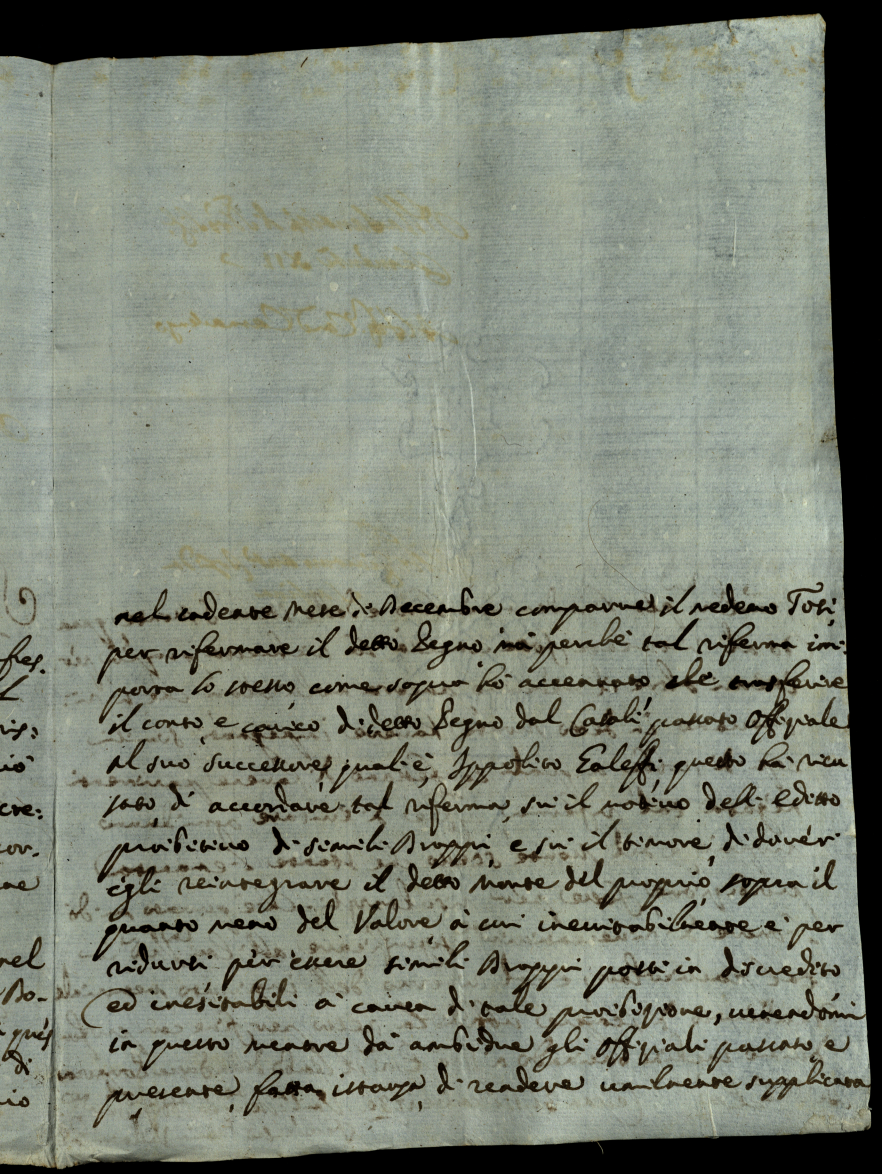 nel cadente Mese di Decembre comparue il medemo Tosi
per rifermare il detto Pegno, mà perche tal riferma im:
porta lo stesso come sopra hò accennato che trasferire
il conto, e carico di detto Pegno dal Casali passato Offiziale
al suo successore, qual è Ippolito Galeffi, questo hà ricu
sato di accordare tal riferma sù il motivo delli editto
proibitivo di simili Drappi, e sù il timore di dover
egli reintegrare il detto Monte del proprio sopra il
quanto meno del Valore à cui ineuitabilmente è per
ridursi per essere simili Drappi posti in discredito
ed inesitabili à causa di tale proibizione, uenendomi
in questo mentre dà ambidue gli Offiziali passato, e
presente fatta istanza di rendere umilmente supplicata
fres.
ris:
cre:
cor:
ne
nel
Bo-
ques
di
io